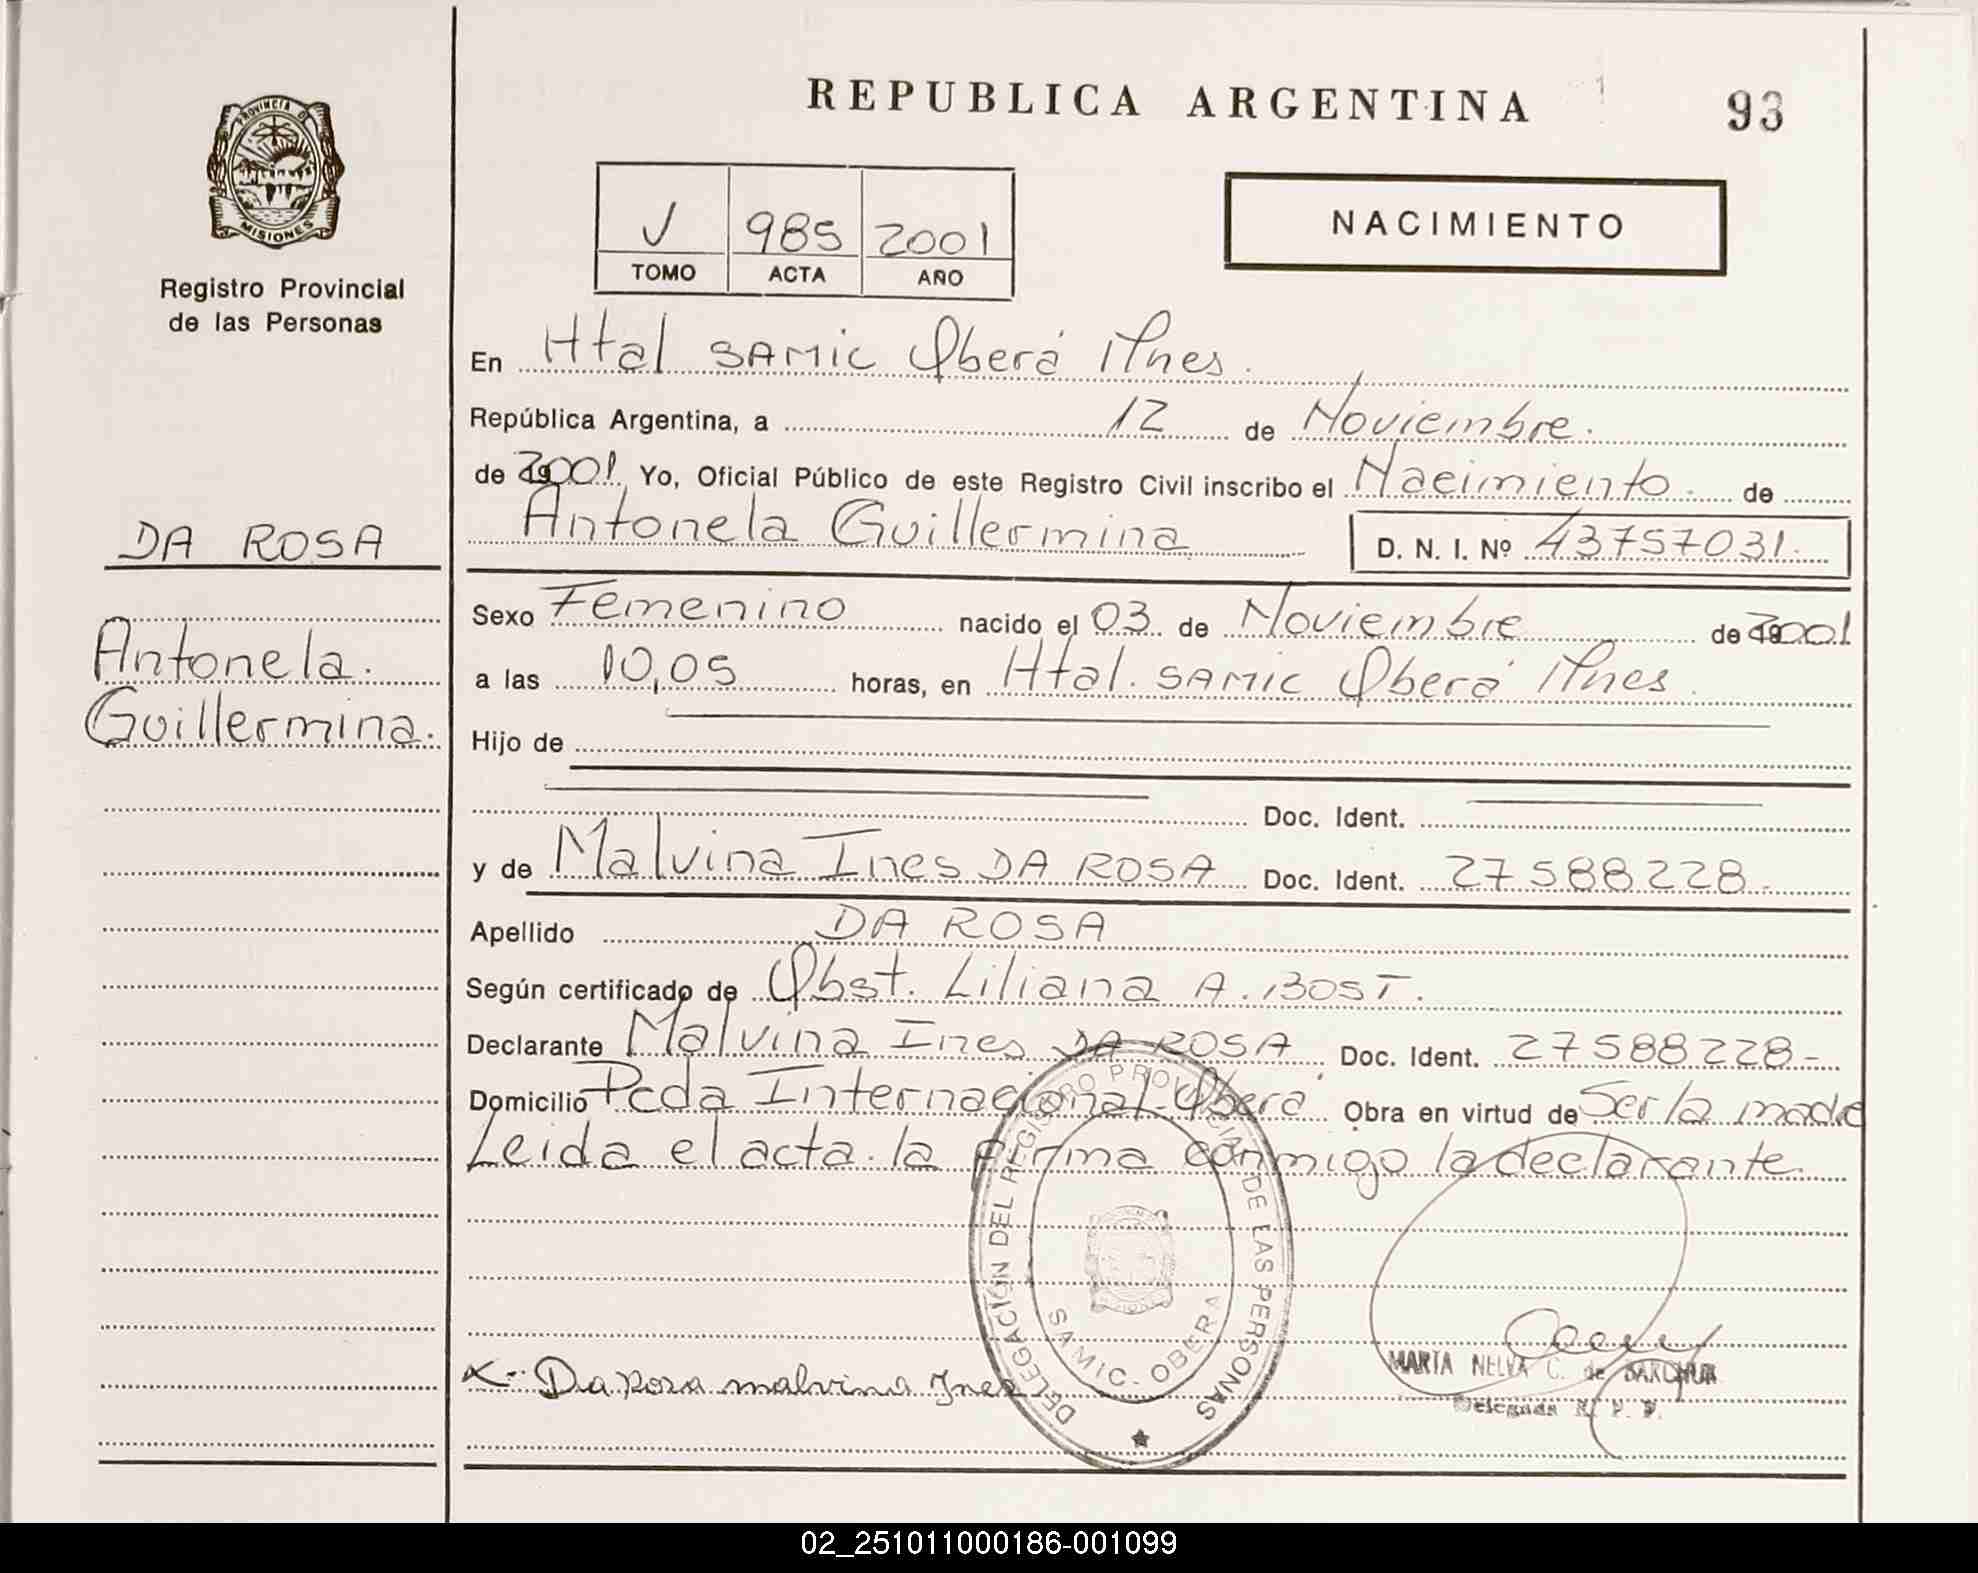 REPUBLICA ARGENTINA
93
PROVINCIA DE
MISIONES
Registro Provincial
de las Personas
V 985 2001
TOMO ACTA AÑO
NACIMIENTO
En Htal SAMIC Oberá Mnes.
República Argentina, a 12 de Noviembre.
de 2001. Yo, Oficial Público de este Registro Civil inscribo el Nacimiento. de
Antonela Guillermina D. N. I. Nº 43757031.
DA ROSA
Antonela.
Guillermina.
Sexo Femenino nacido el 03 de Noviembre de 2001
a las 10,05 horas, en Htal. SAMIC Oberá Mnes.
Hijo de
Doc. Ident.
y de Malvina Ines DA ROSA Doc. Ident. 27588228.
Apellido DA ROSA
Según certificado de Obst. Liliana A. BOST.
Declarante Malvina Ines DA ROSA Doc. Ident. 27588228-
Domicilio Pcda Internacional-Oberá Obra en virtud de Ser la madre
Leida el acta. la firma conmigo la declarante.
DELEGACIÓN DEL REGISTRO PROVINCIAL DE LAS PERSONAS
SAMIC - OBERA
x- Da Rosa malvina Ines
MARTA NELVA C. de
Delegada R. P. P.
02_251011000186-001099